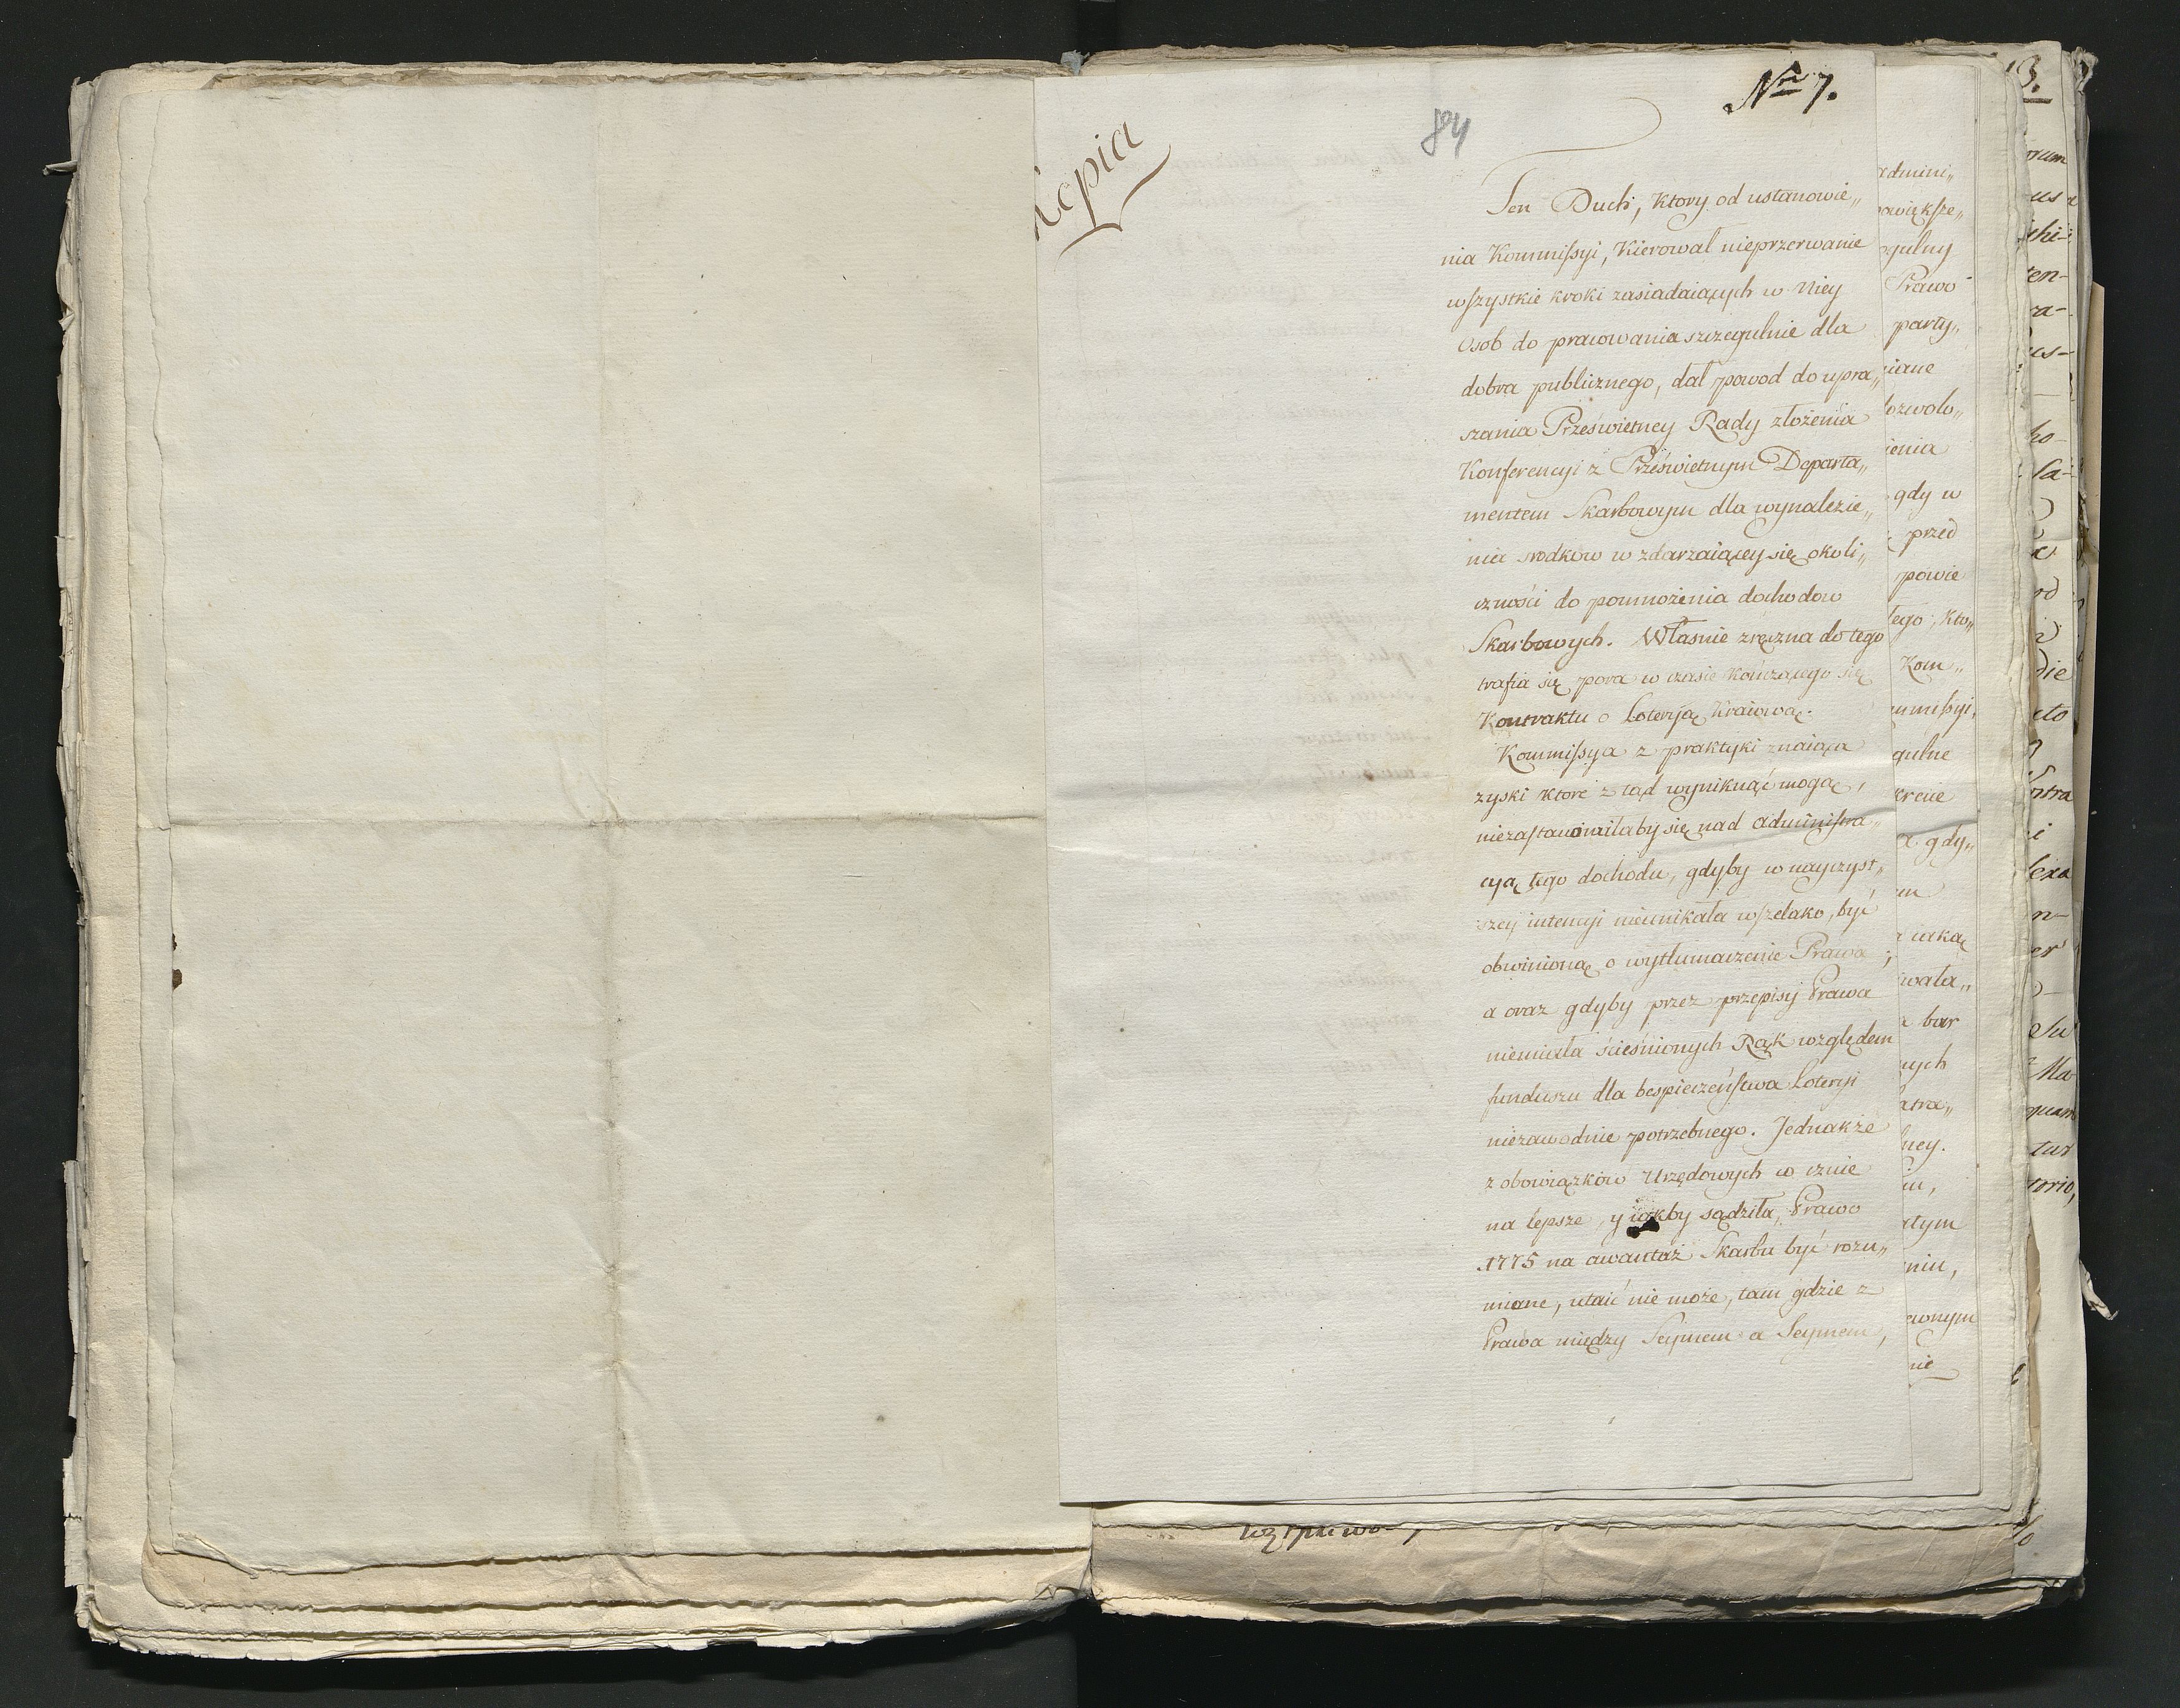 Nro 7.
84
Kopia
Ten Duch, Ktory od ustanowie„
nia Kommiſsyi, Kierował nieprzerwanie
wſzystkie kroki zasiadaiących w Niey
Osob do pracowania szczegulnie dla
dobra publicznego, dał powod do upra„
szania Prześwietney Rady złożenia
Konferencyi z Prześwietnym Departa„
mentem Skarbowym dla wynalezie„
nia srodkow w zdarzaiącey się okoli„
czności do pomnożenia dochodow
Skarbowych. Własnie zręczna do tego
trafia się pora w czasie kończącego się
Kontraktu o Loteryią Kraiową.
Kommiſsya z praktyki znaiąca
zyski ktore z tąd wyniknąć mogą,
niezaſtanowiłaby się nad adminiſtra„
cyą tego dochodu, gdyby w nayczyst„
szey intencyi nieunikała wſzelako, być
obwinioną o wytłumaczenie Prawa;
a oraz gdyby przez przepisy Prawa
niemiała ścieśnionych Rąk względem
funduszu dla bespieczeńſtwa Loteryi
niezawodnie potrzebnego. Jednakże
z obowiązkow Urzędowych w cznie
na lepsze, y iakby sądziła, Prawo
1775 na awantaż Skarbu być rozu„
miane, utaić nie może, tam gdzie z
Prawa między Seymem a Seymem,
admini„
gulny
Prawo
party„
niane
dozwolo„
ienia
gdy w
przed
powie
tego, kto„
Kom„
mmiſsyi,
gulne
krecie
gdy„
iaką
wała„
bar
nych
atra„
ney.
atym
niu,
ewnym
nie
3.